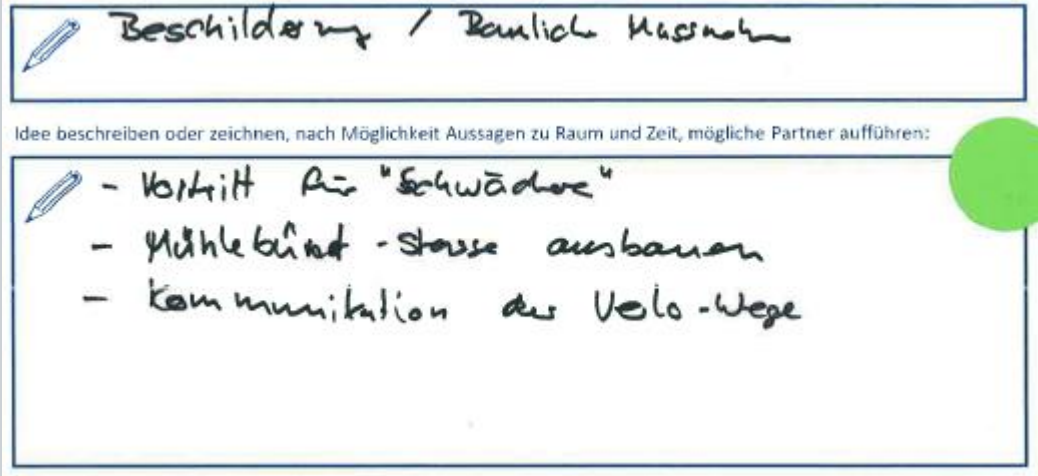 Beschilderung / Bauliche Massnahmen
Idee beschreiben oder zeichnen, nach Möglichkeit Aussagen zu Raum und Zeit, mögliche Partner aufführen:
- Vortritt für "Schwächere"
- Mühlebünd-Strasse ausbauen
- Kommunikation der Velo-Wege